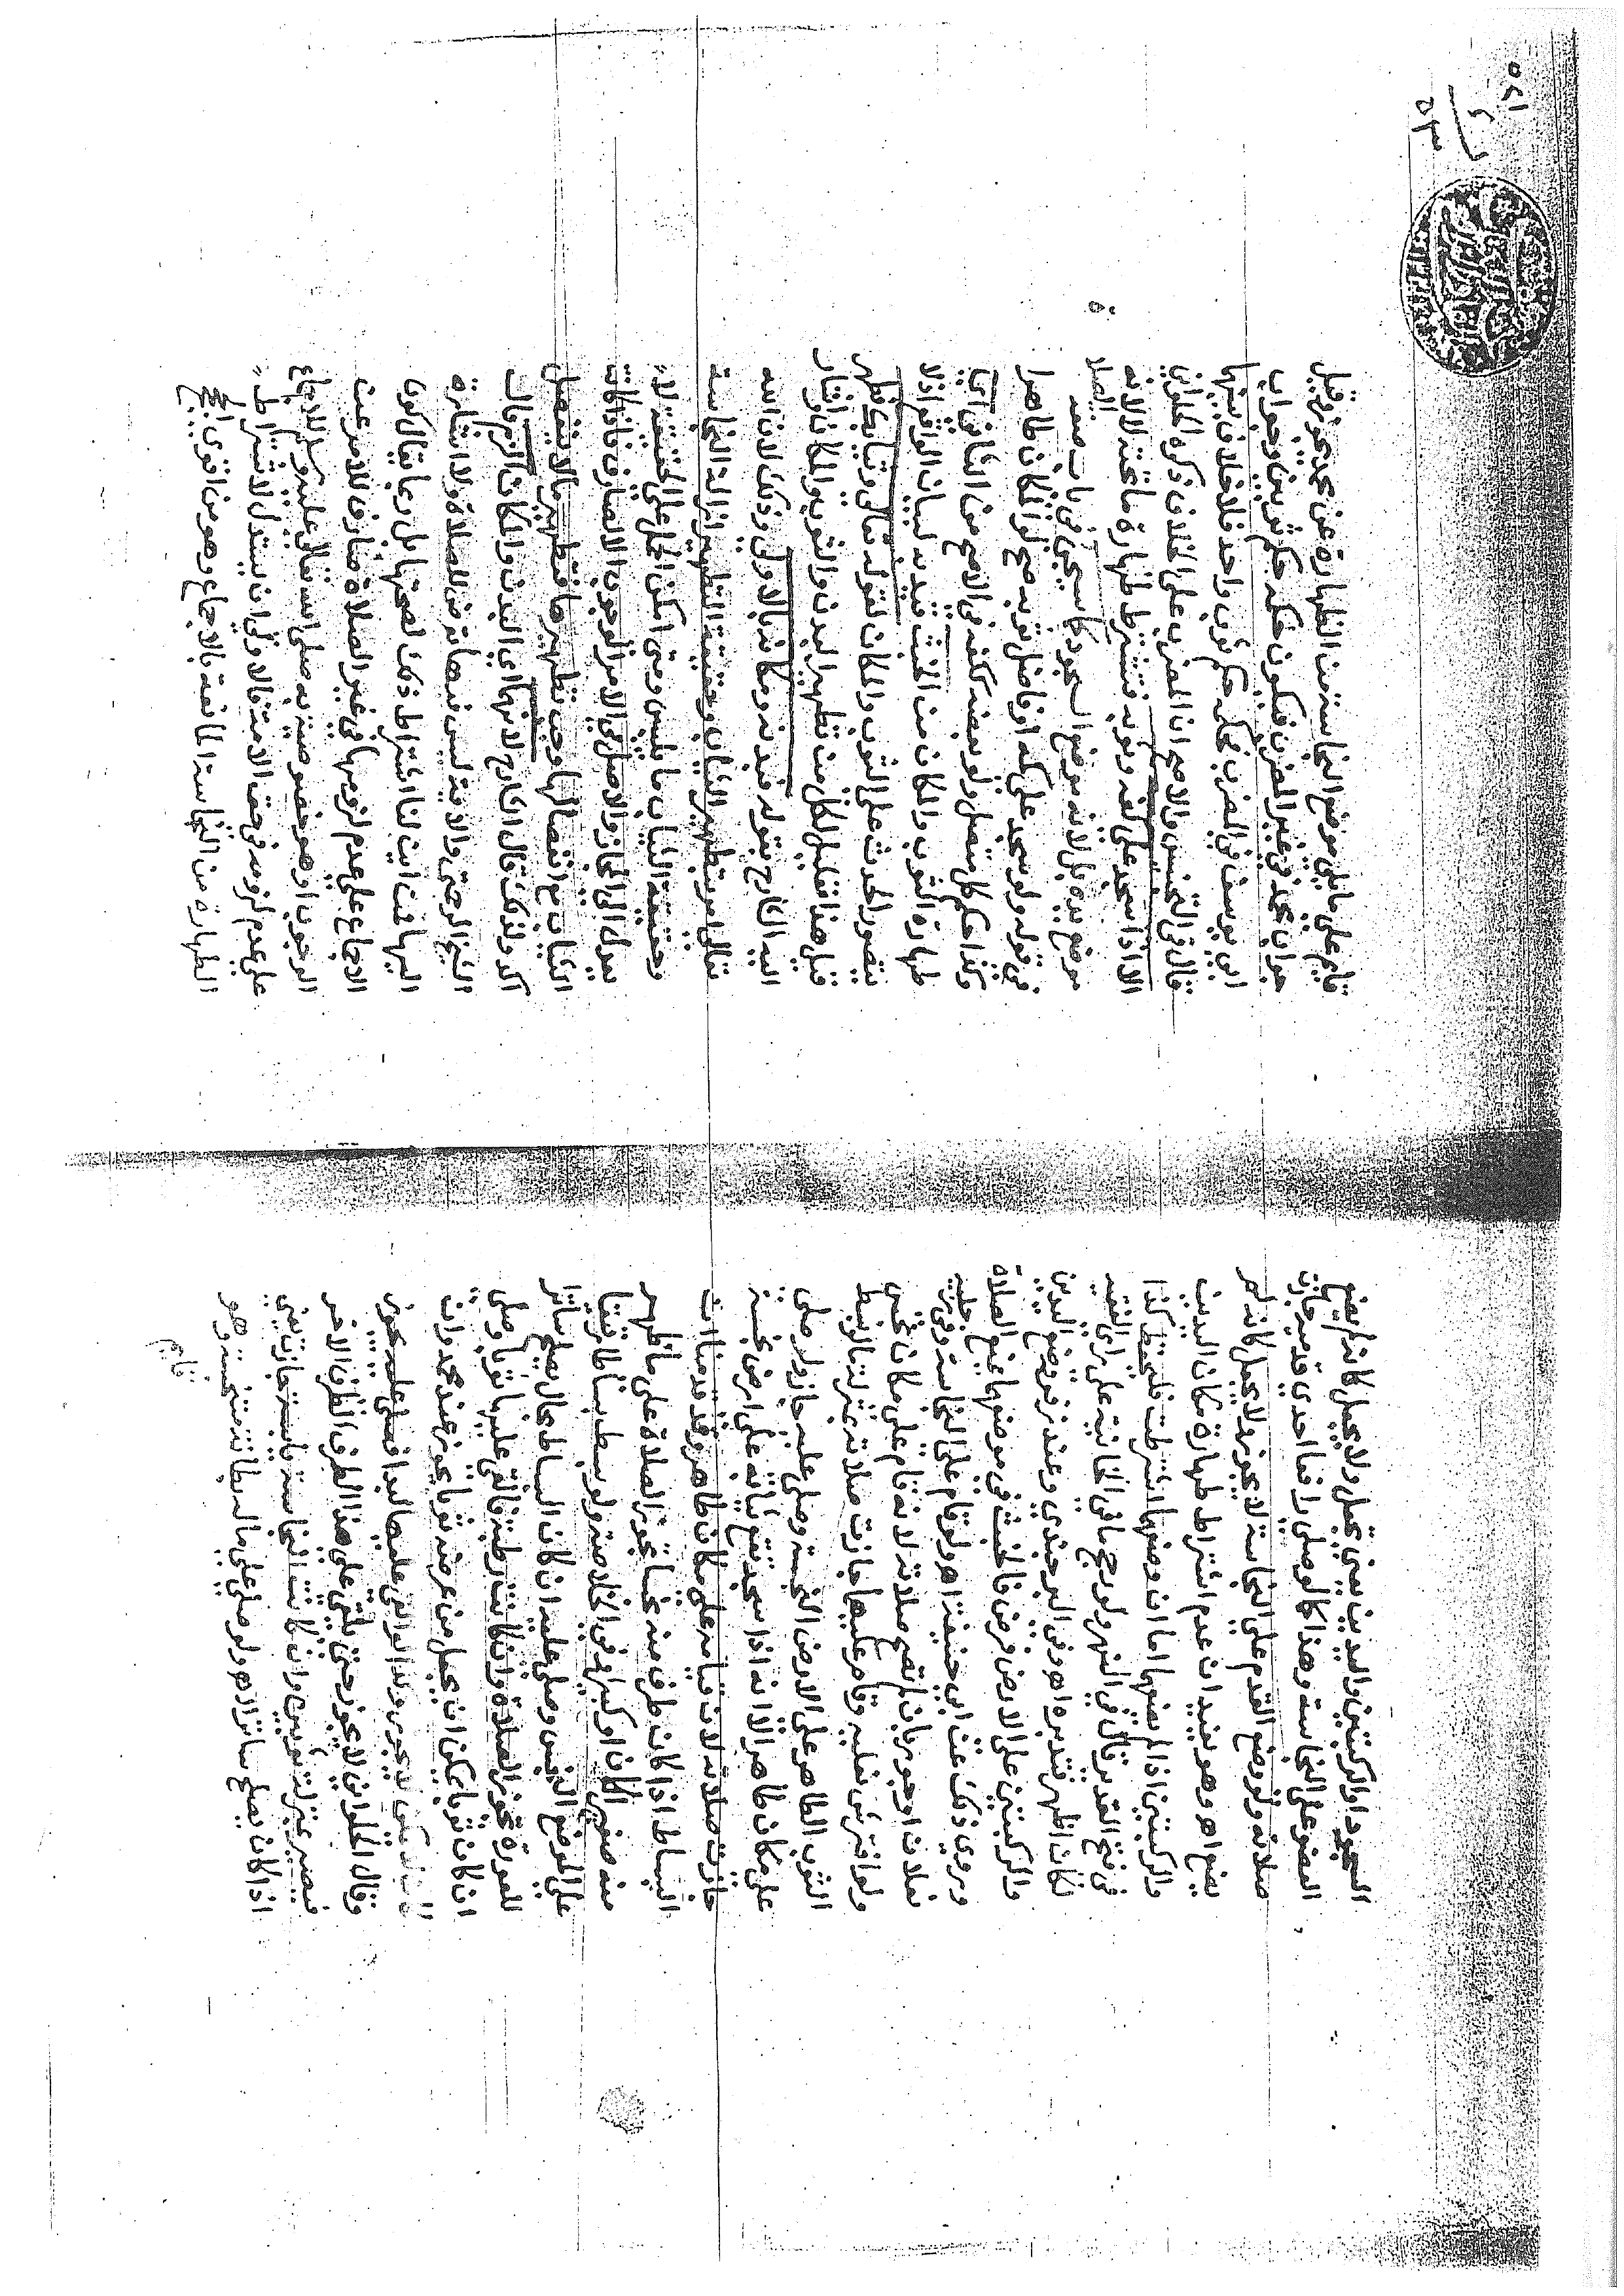 السجود او الركبتين واليدين يعني تجعل ولا يجعل كانه لم يضع
العضو على النجاسة وهذا كما لو صلى رافعا احدى قدميه جازت
صلاته ولو وضع القدم على النجاسة لا يجوز ولا يجعل كانه لم
يضع اهـ وهو يفيد ان عدم اشتراط طهارة مكان اليدين
والركبتين اذا لم يضعهما اما ان وضعهما اشترطت فليحفظ كذا
في فتح القدير قال في النهر ولو رجح ما في الخانية على راي الفقيه
لكان اظهر فتدبره اهـ وفي البرجندي وعند زفر وضع اليدين
والركبتين على الارض فرض فالخبث في موضعهما يمنع الصلاة
وروي ذلك عن ابي حنيفة اهـ ولو قام على النجاسة وفي رجليه
نعلان او جوربان لم تصح صلاته لانه قام على مكان نجس
ولو افترش نعليه وقام عليهما جازت صلاته بمنزلة ما لو بسط
الثوب الطاهر على الارض النجسة وصلى عليه جاز ولو صلى
على مكان طاهر الا انه اذا سجد تقع ثيابه على ارض نجسة
جازت صلاته لان قيامه على مكان طاهر وقد قدمنا ان
البساط اذا كان طرف منه نجسا تجوز الصلاة على ما ظهر
منه صغيرا كان او كبيرا وفي الخلاصة ولو بسط بساطا رقيقا
على الموضع النجس وصلى عليه ان كان البساط بحال يصلح ساترا
للعورة تجوز الصلاة وان كانت رطبة فالقى عليها ثوبا وصلى
ان كان ثوبا يمكن ان يجعل من عرضه ثوبا يجوز عند محمد وان
يمكن لا يجوز لو القى عليها لبدا فصلى عليه يجوز
وقال الحلواني لا يجوز حتى يلقي على هذا الطرف الطرف الاخر
فيصير بمنزلة ثوبين وان كانت النجاسة يابسة جازت يعني
اذا كان يصلح ساترا اهـ ولو صلى على ما له بطانة متنجسة وهو
قايم
قايم على ما يلي موضع النجاسة من الطهارة عن محمد يجوز وقيل
جواب محمد في غير المضرب فيكون حكمه حكم ثوبين وجواب
ابي يوسف في المضرب فحكمه حكم ثوب واحد فلا خلاف بينهما
قال في التجنيس والاصح ان المضرب على الخلاف ذكره الحلواني
الا اذا سجد على كفه وثوبه فتشترط طهارة ما تحته لا لانه
موضع يده بل لانه موضع السجود كما سيجي في باب صفة الصلاة
في قوله ولو سجد على كمه او فاضل ثوبه صح لو المكان طاهرا
وكذا حكم كل متصل ولو بعضه ككفه في الاصح من الثاني اي
طهارة الثوب والمكان من الخبث قيد به لبيان الواقع اذ لا
يتصور الحدث على الثوب والمكان لقوله تعالى وثيابك فطهر
قيل هذا دليل لكل من تطهير البدن والثوب والمكان واشار
اليه الشارح بقوله فبدنه ومكانه بالاولى وذلك لان الله
تعالى امر بتطهير الثياب وحقيقة التطهير ازالة النجاسة
وحقيقة الثياب ما يلبس ومتى امكن الحمل على الحقيقة لا
يعدل الى المجاز والاصل في الامر الوجوب الا لصارف فاذا كانت
الثياب مع انفصالها وجب تطهيرها فتطهير ما لا ينفصل
اكد ولذلك قال الشارح لانهما اي البدن والمكان الزم قال
الشيخ الرحمتي والاية ليس فيها انه من للصلاة ولا اشارة
اليها فمن اين لنا اشتراط ذلك لصحتها بل ربما يقال كون
الاجماع على عدم لزومها في غير الصلاة صارف للامر عن
الوجوب او هو خصوصية به صلى الله تعالى عليه وسلم للاجماع
على عدم لزومه في حق الامة فالاولى ان يستدل لاشتراط
الطهارة من النجاسة المانعة بالاجماع وهو من اقوى الحجج